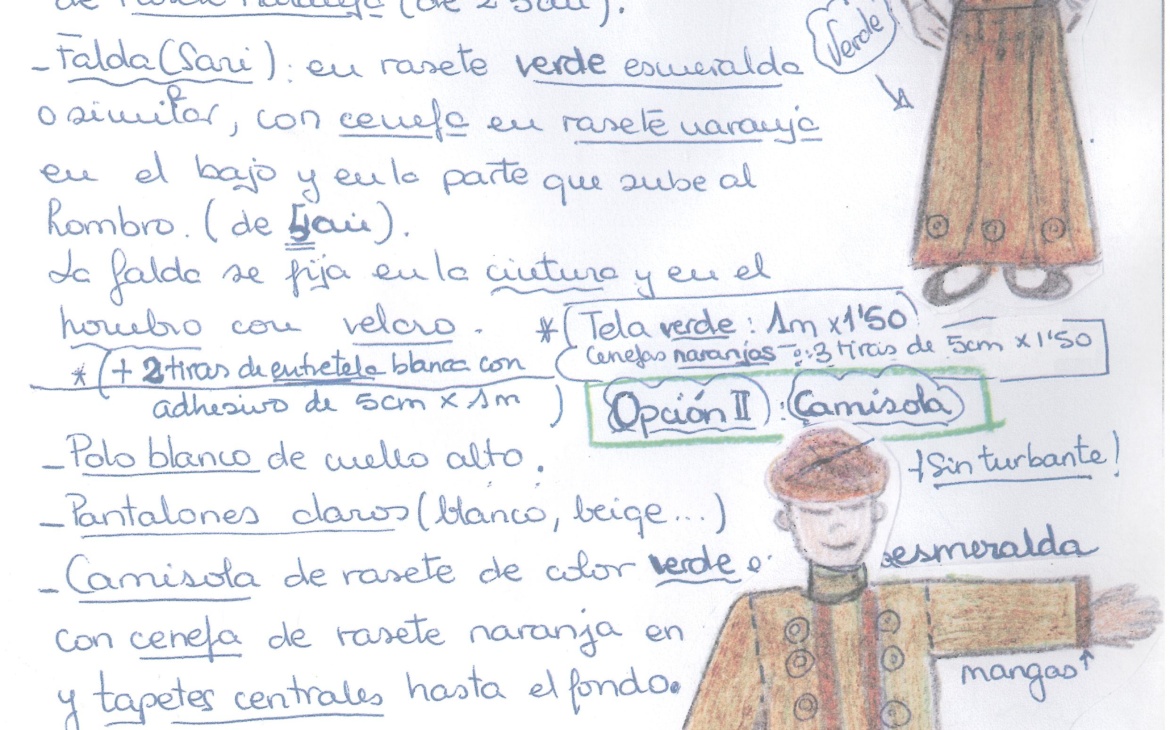 Verde
- Falda (Sari): en rasete verde esmeralda
o similar, con cenefa en rasete naranja
en el bajo y en la parte que sube al
hombro. (de 5cm).
La falda se fija en la cintura y en el
hombro con velcro.
* (Tela verde: 1m x 1'50
Cenefas naranjas: 3 tiras de 5cm x 1'50
* (+ 2 tiras de entretela blanca con
adhesivo de 5cm x 1m)
Opción II: Camisola
- Polo blanco de cuello alto.
¡Sin turbante!
- Pantalones claros (blanco, beige...)
- Camisola de rasete de color verde esmeralda
con cenefa de rasete naranja en mangas
y tapetes centrales hasta el fondo.